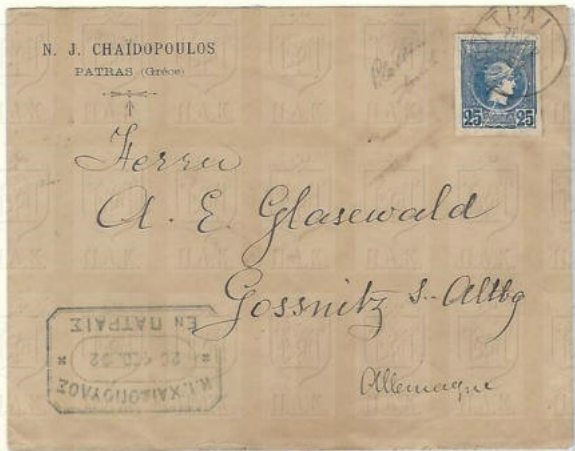 N. J. CHAÏDOPOULOS
PATRAS (Gréce)
ΠΑΤΡΑΙ
25 25
Herrn
A. E. Glasewald
Gossnitz S.-Altbg
Allemagne
Ν.Ι.ΧΑΙΔΟΠΟΥΛΟΣ
ΕΝ ΠΑΤΡΑΙΣ